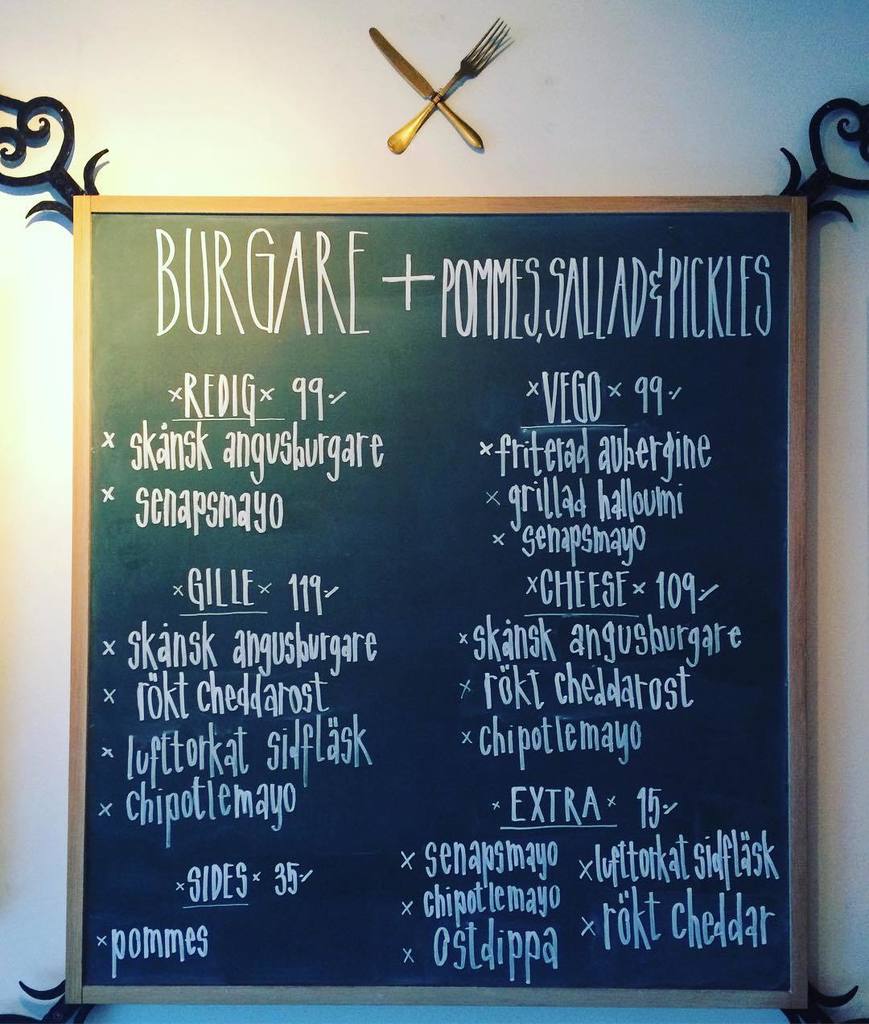 BURGARE + POMMES, SALLAD & PICKLES
×REDIG× 99:-
× skånsk angusburgare
× senapsmayo
×GILLE× 119:-
× skånsk angusburgare
× rökt cheddarost
× lufttorkat sidfläsk
× chipotlemayo
×SIDES× 35:-
×pommes
×VEGO× 99:-
×friterad aubergine
× grillad halloumi
× senapsmayo
×CHEESE× 109:-
×skånsk angusburgare
× rökt cheddarost
×chipotlemayo
×EXTRA× 15:-
× senapsmayo
× chipotlemayo
× ostdippa
×lufttorkat sidfläsk
×rökt cheddar